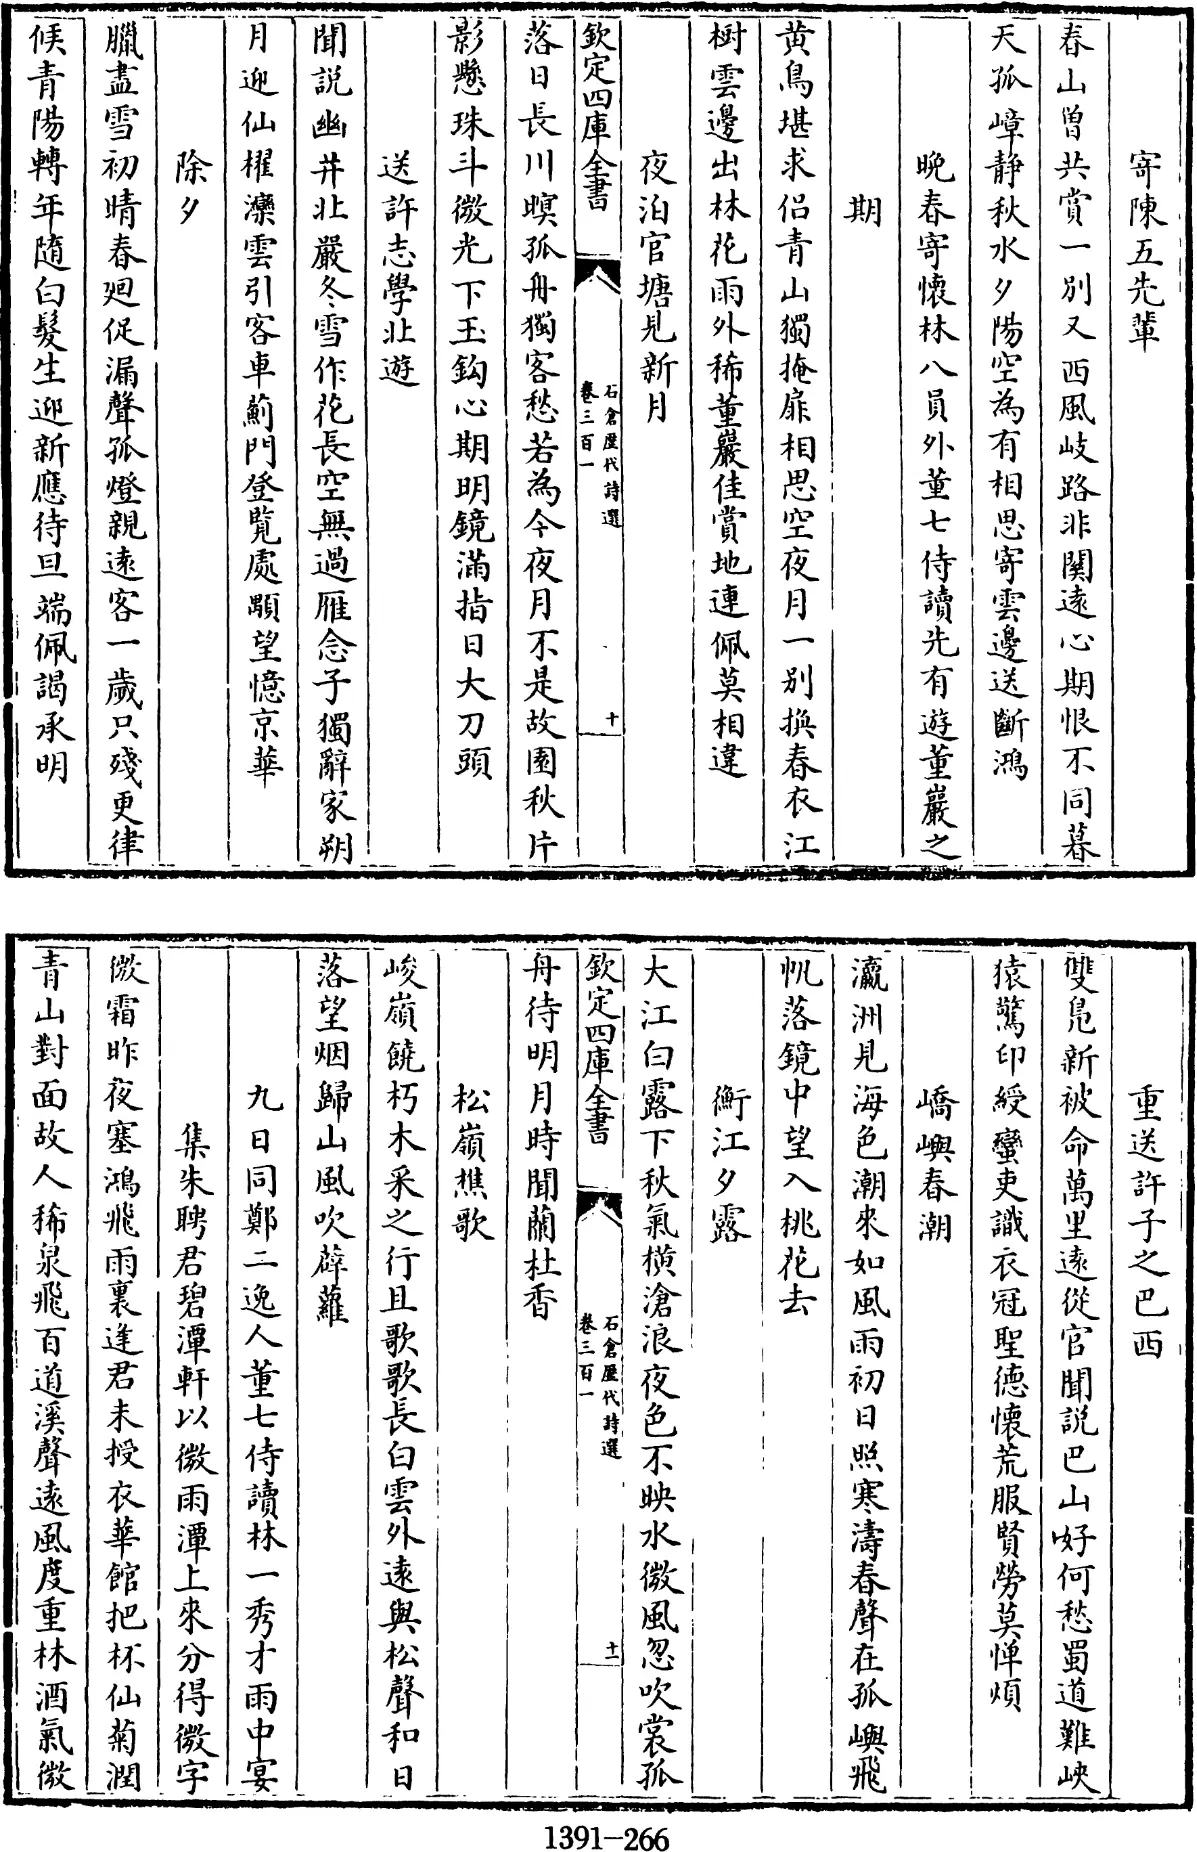 寄陳五先輩
春山曽共賞一別又西風岐路非關遠心期恨不同暮
天孤嶂静秋水夕陽空為有相思寄雲邊送斷鴻
晚春寄懷林八員外董七侍讀先有遊董巖之
期
黄鳥堪求侣青山獨掩扉相思空夜月一别換春衣江
樹雲邊出林花雨外稀董巖佳賞地連佩莫相違
夜泊官塘見新月
欽定四庫全書
石倉歷代詩選
卷三百一
十
落日長川暝孤舟獨客愁若為今夜月不是故園秋片
影懸珠斗微光下玉鈎心期明鏡滿指日大刀頭
送許志學北遊
聞說幽井北嚴冬雪作花長空無過雁念子獨辭家朔
月迎仙櫂灤雲引客車薊門登覧處顒望憶京華
除夕
臘盡雪初晴春廻促漏聲孤燈親遠客一歲只殘更律
候青陽轉年随白髮生迎新應待旦端佩謁承明
重送許子之巴西
雙鳬新被命萬里遠從官聞説巴山好何愁蜀道難峽
猿驚印綬蠻吏識衣冠聖德懷荒服賢勞莫惮煩
嶠嶼春潮
瀛洲見海色潮來如風雨初日照寒濤春聲在孤嶼飛
帆落鏡中望入桃花去
衡江夕露
大江白露下秋氣橫滄浪夜色不映水微風忽吹裳孤
欽定四庫全書
石倉歷代詩選
卷三百一
十一
舟待明月時聞蘭杜香
松嶺樵歌
峻嶺饒朽木采之行且歌歌長白雲外遠與松聲和日
落望烟歸山風吹薜蘿
九日同鄭二逸人董七侍讀林一秀才雨中宴
集朱聘君碧潭軒以微雨潭上來分得微字
微霜昨夜塞鴻飛雨裏逢君未授衣華館把杯仙菊潤
青山對面故人稀泉飛百道溪聲遠風度重林酒氣微
1391-266